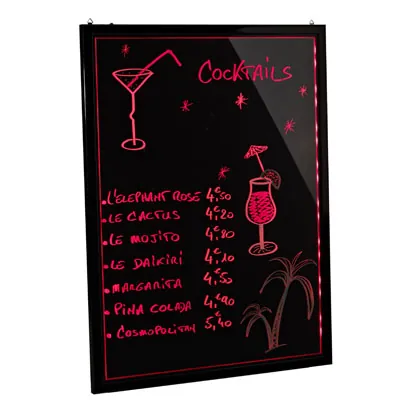 COCKTAILS
• L'ELEPHANT ROSE 4,€50
• LE CACTUS 4,€20
• LE MOJITO 4,€80
• LE DAIKIRI 4,€10
• MARGARITA 4,€50
• PINA COLADA 4,€90
• COSMOPOLITAN 5,€40